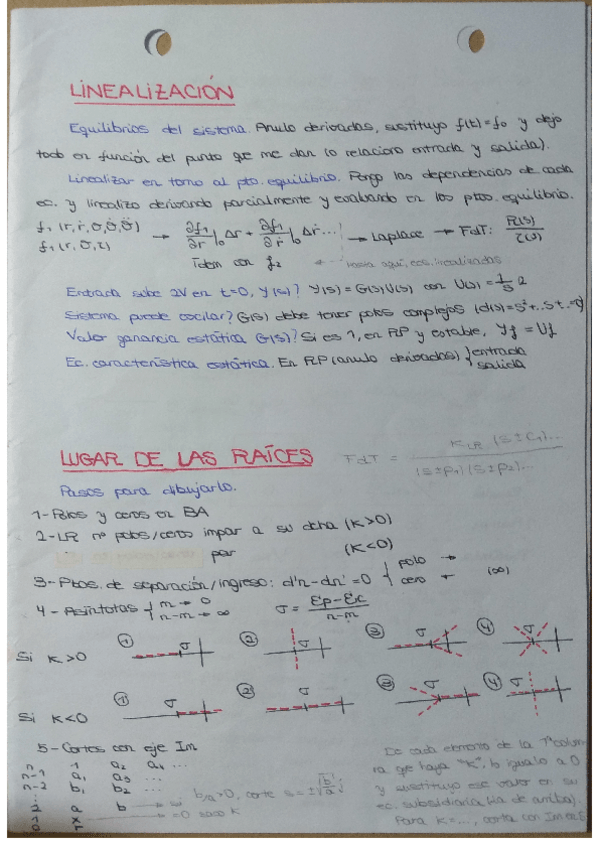 LINEALIZACIÓN
Equilibrios del sistema. Anulo derivadas, sustituyo f(t)=f₀ y dejo
todo en función del punto que me dan (o relaciono entrada y salida).
Linealizar en torno al pto. equilibrio. Pongo las dependencias de cada
ec. y linealizo derivando parcialmente y evaluando en los ptos. equilibrio.
f₁ (r, ṙ, σ, σ̇, σ̈) → ∂f₁/∂r|₀ Δr + ∂f₁/∂ṙ|₀ Δṙ ... → Laplace → FdT: R(s)/τ(s)
Ídem con f₂ ← hasta aquí, ecs. linealizadas
Entrada sube 2V en t=0, y(s)? Y(s) = G(s)U(s) con U(s) = 1/s 2
Sistema puede oscilar? G(s) debe tener polos complejos
Valor ganancia estática G(s)? Si es 1, en RP y estable, yf = Uf
Ec. característica estática. En RP (anulo derivadas) { entrada
salida
LUGAR DE LAS RAÍCES FdT = K_LR (s±c₁)... / (s±p₁)(s±p₂)...
Pasos para dibujarlo.
1-Polos y ceros en BA
2-LR nº polos/ceros impar a su dcha (K>0)
par (K<0)
3-Ptos. de separación/ingreso: d'n-dn' = 0 { polo →
cero ← (∞)
4-Asíntotas { m → 0
n-m → ∞ σ = (Σp-Σc)/(n-m)
Si K>0 ① σ ② ③ σ ④ σ
Si K<0 ① σ ② σ ③ σ ④ σ
5-Cortes con eje Im
n 1 a₂ a₄ ...
n-1 a₁ a₃ ...
n-2 b₁ b₂ ...
2 a b
1 =0 saco K
0
De cada elemento de la 1ª colum
na que haya "K", b igualo a 0
y sustituyo ese valor en su
ec. subsidiaria (la de arriba).
Para K=..., corta con Im en s